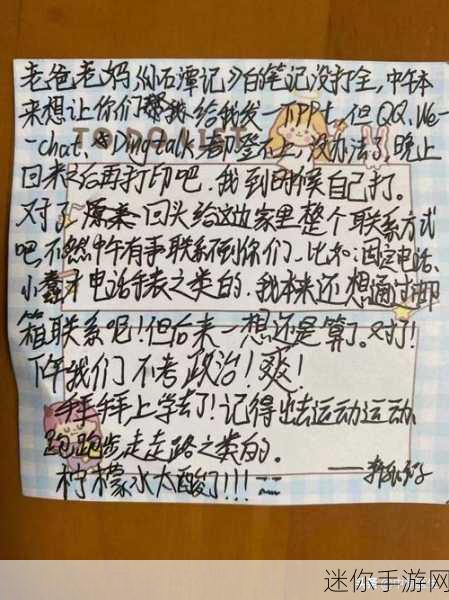 老爸老妈《小石潭记》的笔记没打全，中午本
来想让你们帮我给我发一下PPt，但QQ、We-
chat、Dingtalk都登不上，没办法了，晚上
回来之后再打印吧，我到时候自己打。
TO DO LIST
对了 回头给这边家里整个联系方式
吧，不然中午有事联系不到你们，比如：固定电话、
小天才电话手表之类的，我本来还想通过邮
箱联系呢！但后来一想还是算了。对了！
下午我们不考政治！爽！
拜拜上学去了！记得出去运动运动
跑跑步走走路之类的。
柠檬水太酸了!!!
迷你手游网